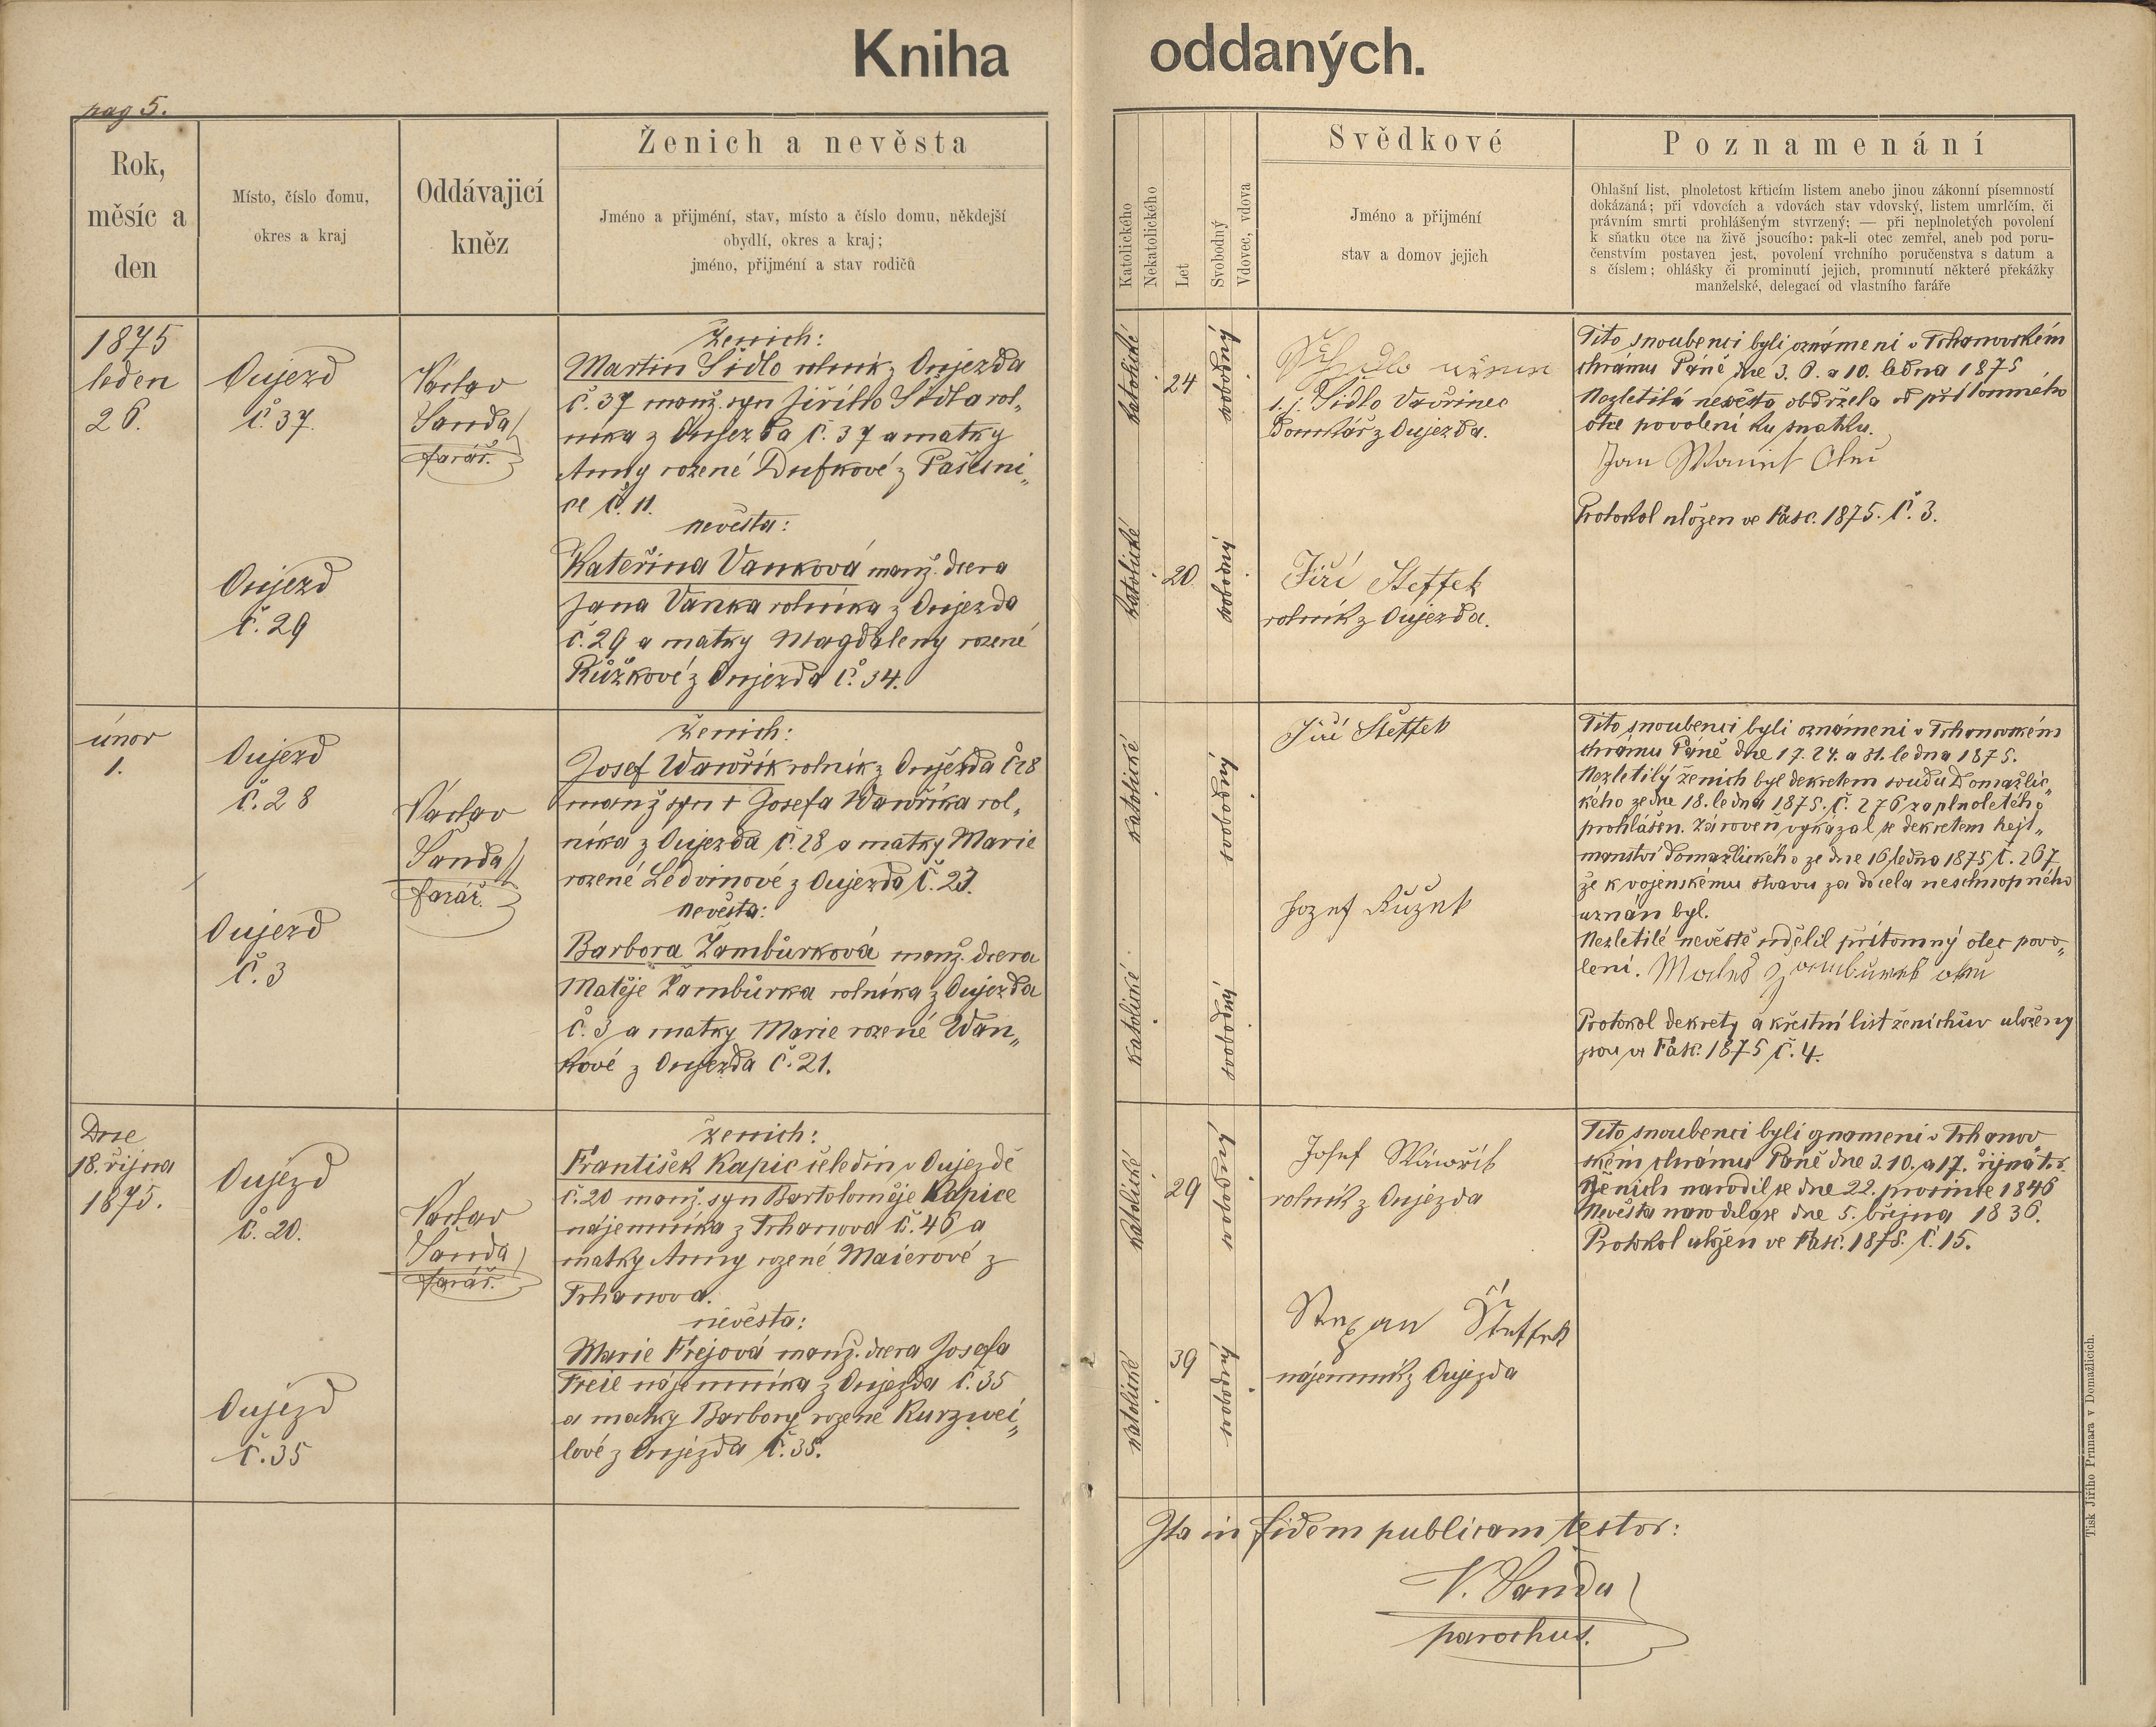 Kniha oddaných.
pag 5.
Rok,
měsíc a
den
Místo, číslo domu,
okres a kraj
Oddávajicí
kněz
Ženich a nevěsta
Jméno a přijmění, stav, místo a číslo domu, někdejší
obydlí, okres a kraj;
jméno, přijmění a stav rodičů
Katolického
Nekatolického
Let
Svobodný
Vdovec, vdova
Svědkové
Jméno a přijmění
stav a domov jejich
Poznamenání
Ohlašní list, plnoletost křticím listem anebo jinou zákonní písemností
dokázaná; při vdovcích a vdovách stav vdovský, listem umrlčím, či
právním smrti prohlášeným stvrzený; — při neplnoletých povolení
k sňatku otce na živě jsoucího: pak-li otec zemřel, aneb pod poru-
čenstvím postaven jest, povolení vrchního poručenstva s datum a
s číslem; ohlášky či prominutí jejich, prominutí některé překážky
manželské, delegací od vlastního faráře
1875
leden
26.
Oujezd
č. 37.
Oujezd
č. 29
Václav
Šanda
farář.
ženich:
Martin Šídlo rolník z Oujezda
č. 37 manž. syn Jiřího Šídla rol„
níka z Oujezda č. 37 a matky
Anny rozené Dufkové z Pašesni„
ce č. 11.
nevěsta:
Kateřina Vanková manž. dcera
Jana Vanka rolníka z Oujezda
č. 29 a matky Magdaleny rozené
Růžkové z Oujezda č. 34.
katolické
24
svobodný
katolické
20
svobodný
Šídlo Vavřinec
Domkář z Oujezda.
Jiří Steffek
rolník z Oujezda.
Tito snoubenci byli oznámeni v Trhanovském
chrámu Páně dne 3. 6. a 10. ledna 1875
Nezletilá nevěsta obdržela od přítomného
otce povolení ku sňatku.
Jan
Protokol uložen ve Fasc. 1875. č. 3.
únor
1.
Oujezd
č. 28
Oujezd
č. 3
Václav
Šanda
farář.
ženich:
Josef Wawřík rolník z Oujezda č 28
manž syn † Josefa Wawříka rol„
níka z Oujezda č. 28 a matky Marie
rozené Ledvinové z Oujezda č. 23.
nevěsta:
Barbora Žambůrková manž. dcera
Matěje Žambůrka rolníka z Oujezda
č. 3 a matky Marie rozené Wan„
kové z Oujezda č. 21.
katolické
svobodný
katolické
svobodný
Jiří Šteffek
Jozef Růžek
Tito snoubenci byli oznámeni v Trhanovském
chrámu Páně dne 17. 24. a 31. ledna 1875.
Nezletilý ženich byl dekretem soudu Domažlic„
kého ze dne 18. ledna 1875. č. 276 za plnoletého
prohlášen. Zároveň vykázal se dekretem hejt„
manství domažlického ze dne 16 ledna 1875 č. 267
že k vojenskému stavu za docela neschopného
uznán byl.
Nezletilé nevěstě udělil přítomný otec povo„
lení.
Protokol dekrety a křestní list ženichův uloženy
jsou ve Fasc. 1875 č. 4.
Dne
18. října
1875.
Oujezd
č. 20.
Oujezd
č. 35
Václav
Šanda
farář.
ženich:
František Kapic čeledín v Oujezdě
č. 20 manž. syn Bartoloměje Kapice
nájemníka z Trhanova č. 46 a
matky Anny rozené Maierové z
Trhanova.
nevěsta:
Marie Frejová manž. dcera Josefa
Freie nájemníka z Oujezda č. 35
a matky Barbory rozené Kurzwei„
lové z Oujezda č. 35.
katolické
29
svobodný
katolické
39
svobodný
Josef Wawřík
rolník z Oujezda
Štepan Šteffek
nájemník z Oujezda
Tito snoubenci byli oznameni v Trhanov
ském chrámu Páně dne 3. 10. a 17. října t. r.
Ženich narodil se dne 22. prosince 1846
Nevěsta narodila se dne 5. března 1836.
Protokol uložen ve Fasc. 1875. č. 15.
Ita in fidem publicam testor:
V. Šanda
parochus.
Tisk Jiřího Prunara v Domažlicích.